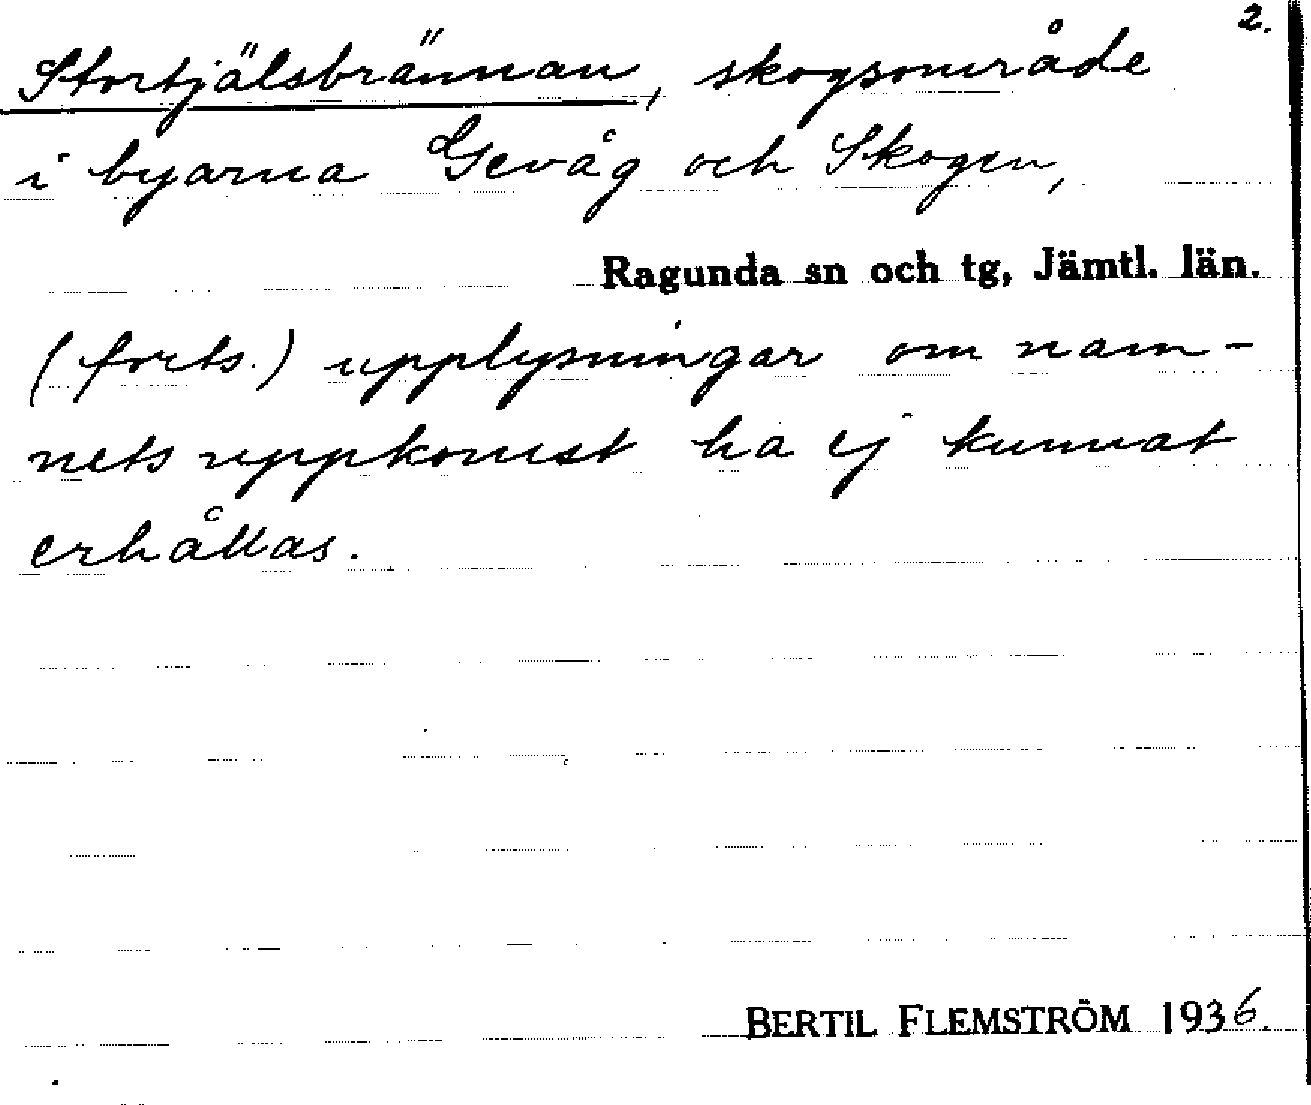 2.
Stortjälsbrännan, skogsområde
i byarna Gevåg och Skogen,
Ragunda sn och tg, Jämtl. län.
(forts.) upplysningar om nam-
nets uppkomst ha ej kunnat
erhållas.
BERTIL FLEMSTRÖM 1936.